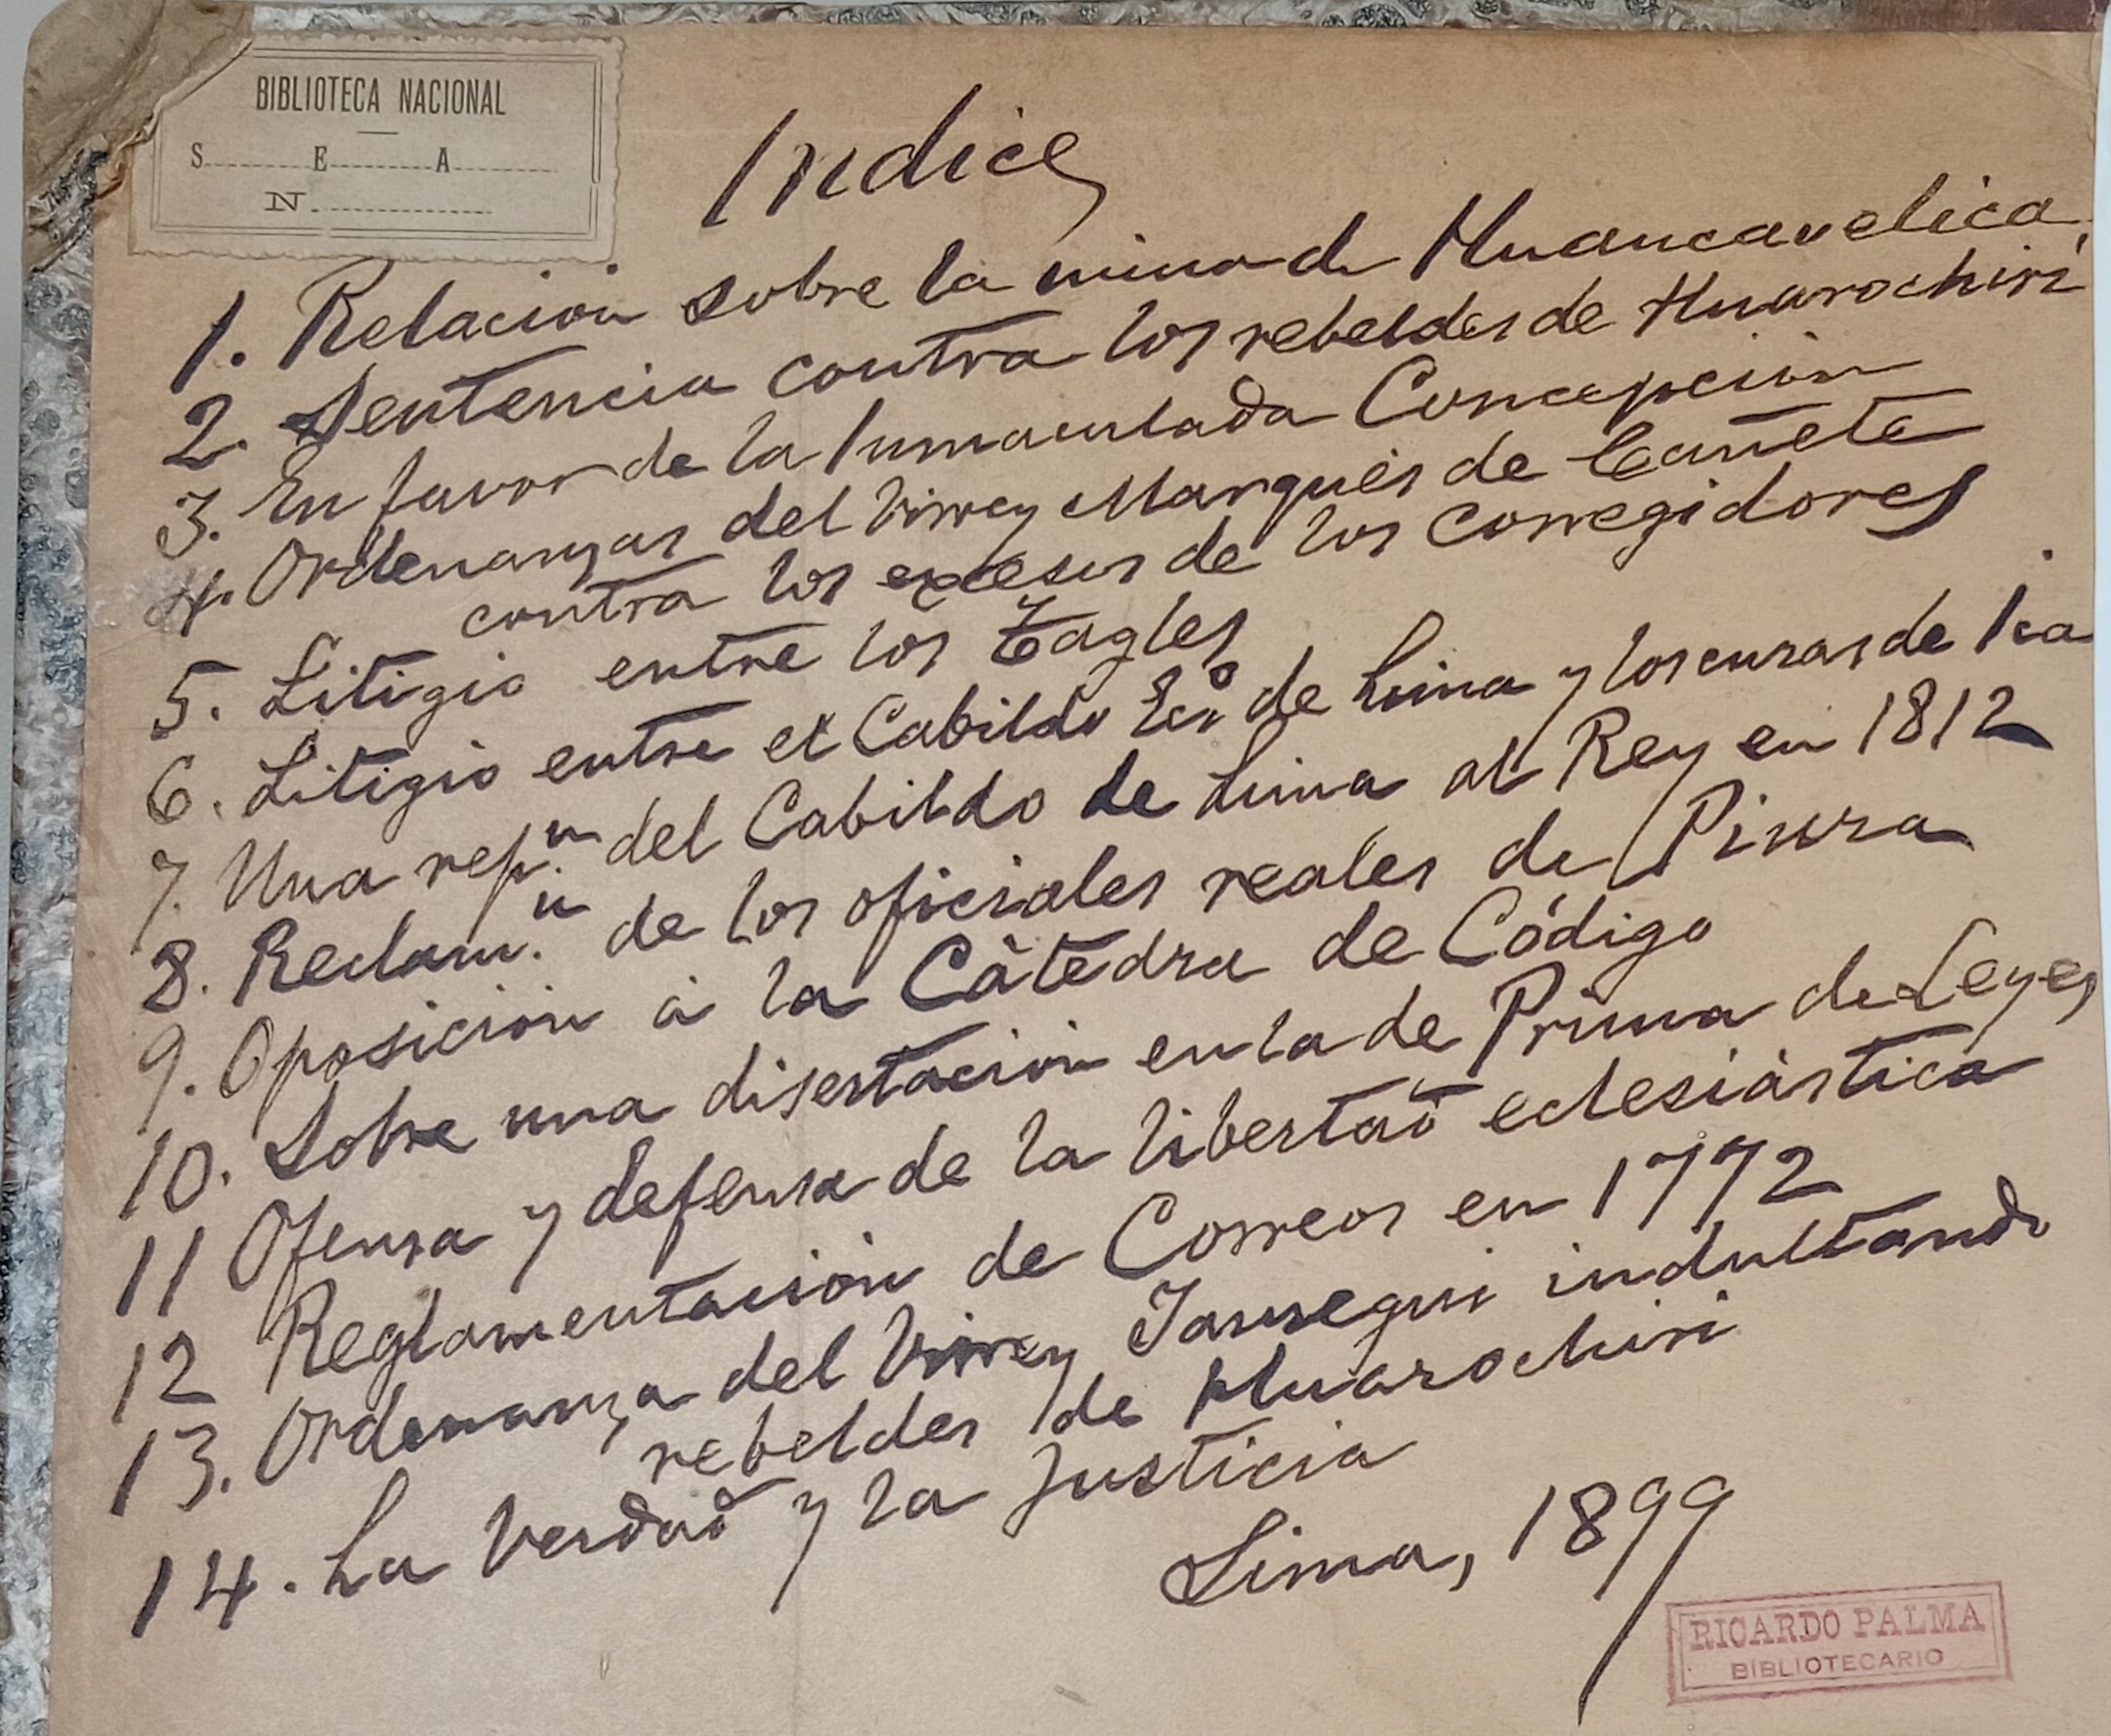 BIBLIOTECA NACIONAL
S. E. A.
N.
Indice
1. Relación sobre la mina de Huancavelica.
2. Sentencia contra los rebeldes de Huarochirí
3. En favor de la Inmaculada Concepción
4. Ordenanzas del Virrey Marqués de Cañete
contra los excesos de los corregidores
5. Litigio entre los Tagles
6. Litigio entre el Cabildo Ecº de Lima y los curas de Ica
7. Una repn. del Cabildo de Lima al Rey en 1812
8. Reclam.n de los oficiales reales de Piura
9. Oposición á la Cátedra de Código
10. Sobre una disertación en la de Prima de Leyes
11 Ofensa y defensa de la libertad eclesiástica
12 Reglamentación de Correos en 1772
13. Ordenanza del Virrey Jauregui indultando
rebeldes de Huarochiri
14. La Verdad y la Justicia
Lima, 1899
RICARDO PALMA
BIBLIOTECARIO